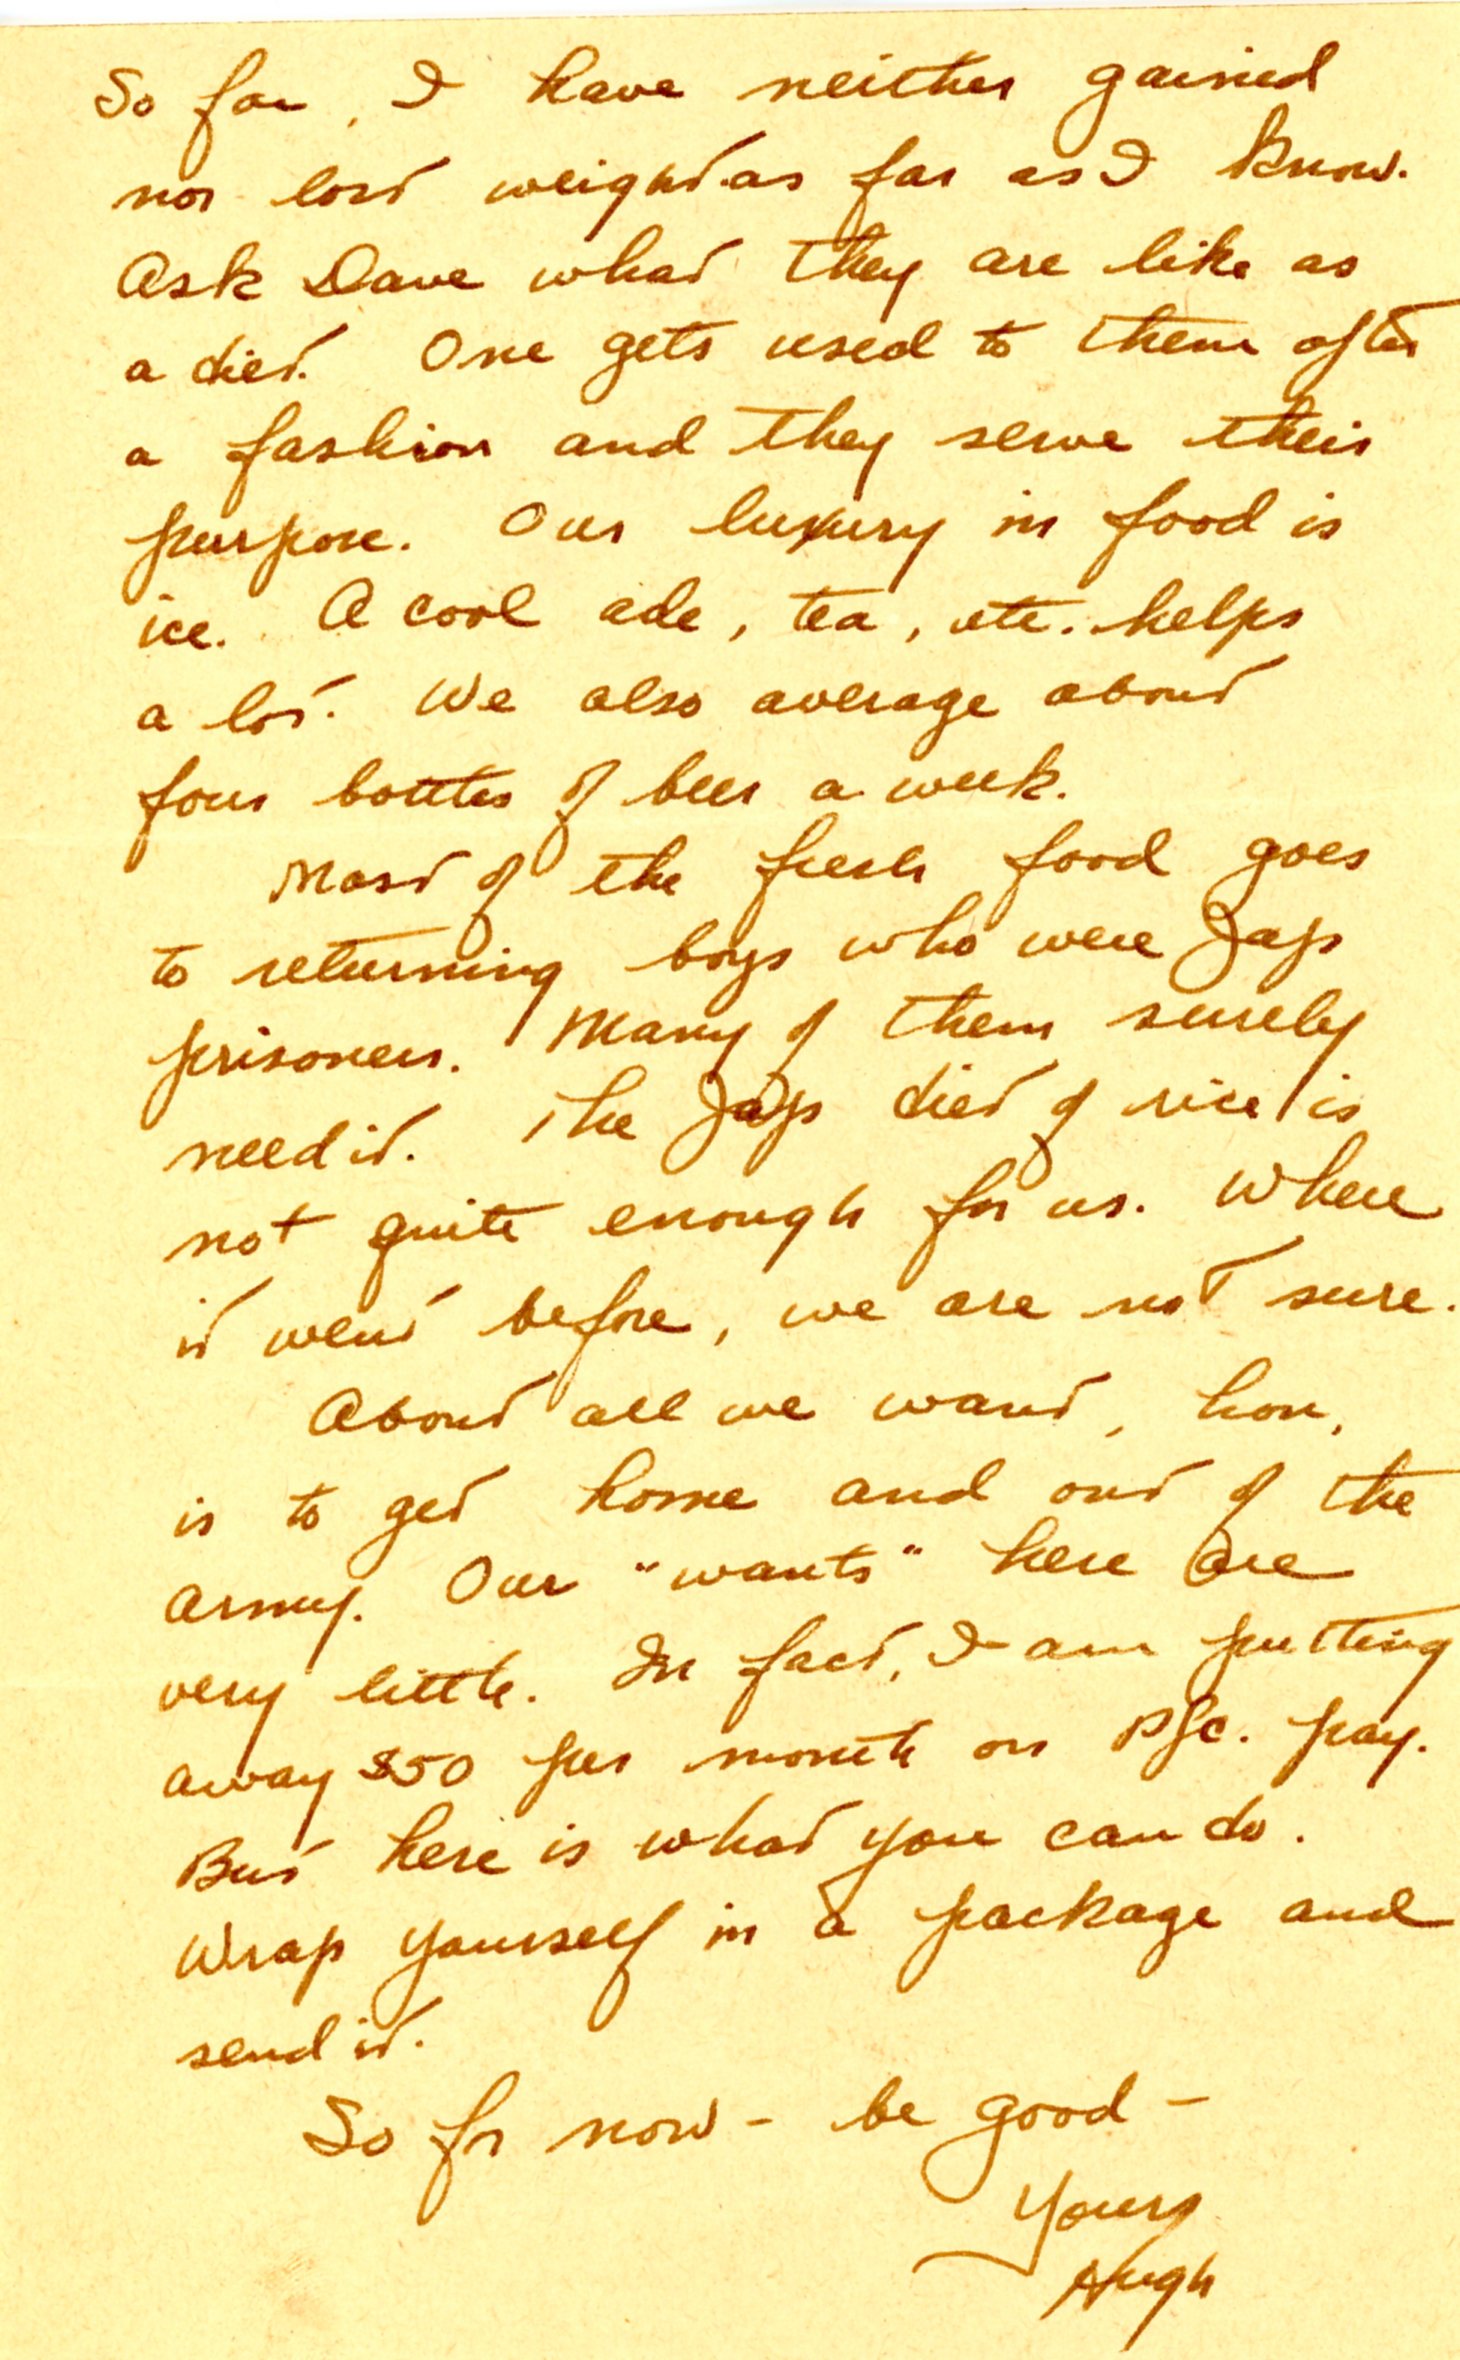 So far, I have neither gained
nor lost weight as far as I know.
Ask Dave what they are like as
a diet. One gets used to them after
a fashion and they serve their
purpose. Our luxury in food is
ice. A cool ade, tea, etc. helps
a lot. We also average about
four bottles of beer a week.
Most of the fresh food goes
to returning boys who were Jap
prisoners. Many of them surely
need it. The Jap diet of rice is
not quite enough for us. Where
it went before, we are not sure.
About all we want, hon,
is to get home and out of the
army. Our "wants" here are
very little. In fact, I am putting
away $50 per month on Pfc. pay.
But here is what you can do.
Wrap yourself in a package and
send it.
So for now - be good -
Yours
Hugh